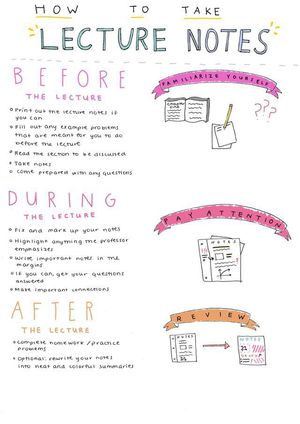 HOW TO TAKE
LECTURE NOTES
BEFORE
THE LECTURE
Print out the lecture notes if
you can
Fill out any example problems
that are meant for you to do
before the lecture
Read the section to be discussed
Take notes
Come prepared with any questions
FAMILIARIZE YOURSELF
???
DURING
THE LECTURE
Fix and mark up your notes
Highlight anything the professor
emphasizes
Write important notes in the
margins
If you can, get your questions
answered
Make important connections
PAY ATTENTION
NOTES
AFTER
THE LECTURE
Complete homework/practice
problems
Optional: rewrite your notes
into neat and colorful summaries
REVIEW
NOTES
NOTES